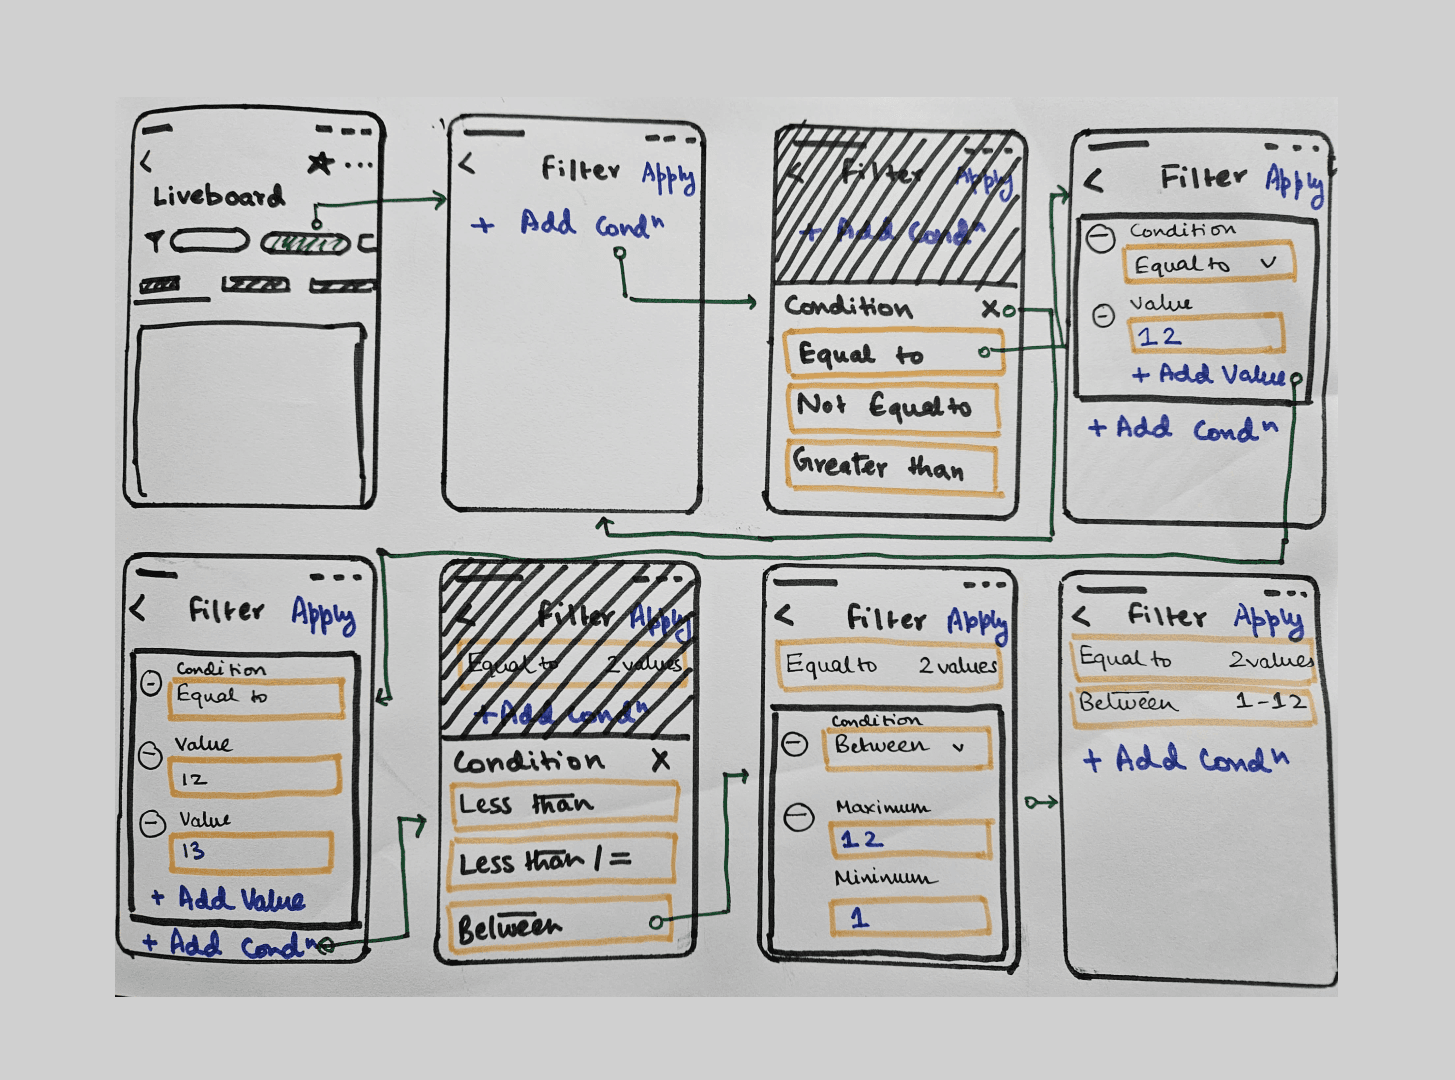 Liveboard
Filter Apply
+ Add Condⁿ
Filter Apply
+ Add Condⁿ
Condition X
Equal to
Not Equal to
Greater than
Filter Apply
Condition
Equal to
Value
12
+ Add Value
+ Add Condⁿ
Filter Apply
Condition
Equal to
Value
12
Value
13
+ Add Value
+ Add Condⁿ
Filter Apply
Equal to 2 values
+ Add Condⁿ
Condition X
Less than
Less than / =
Between
Filter Apply
Equal to 2 values
Condition
Between
Maximum
12
Mininum
1
Filter Apply
Equal to 2 values
Between 1-12
+ Add Condⁿ